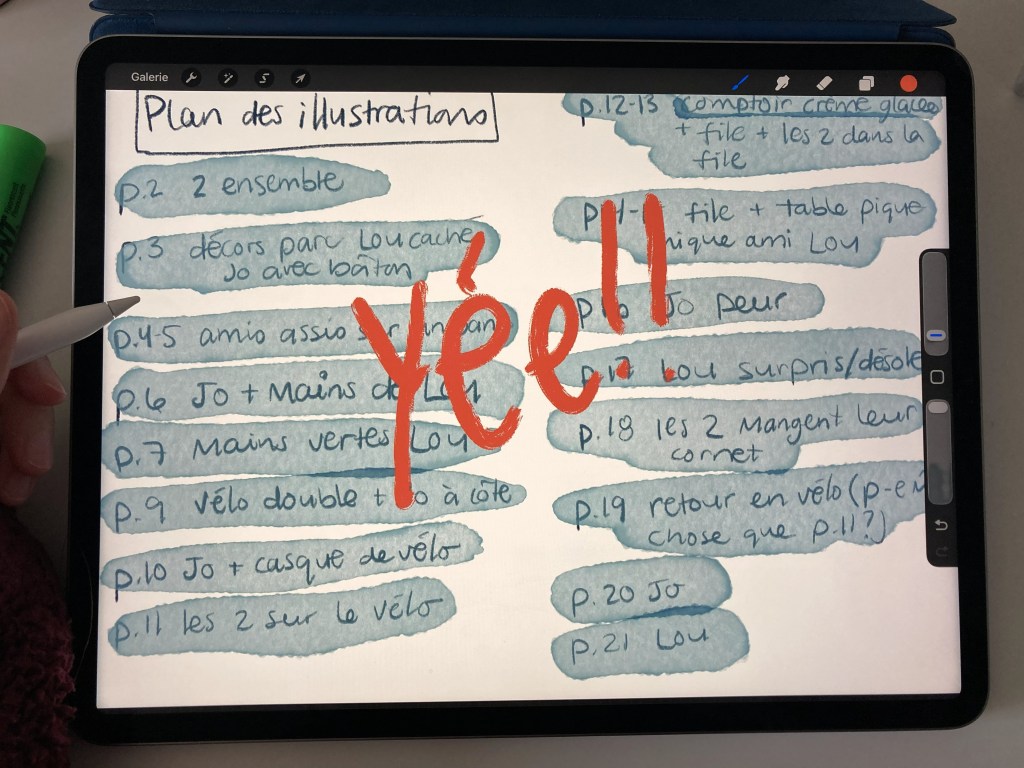 Galerie
Plan des illustrations
p.2 2 ensemble
p.3 décors parc Lou cache
Jo avec bâton
p.4-5 amis assis
p.6 Jo + Mains de Lou
p.7 Mains vertes Lou
p.9 vélo double + à côté
p.10 Jo + casque de vélo
p.11 les 2 sur le vélo
p.12-13 comptoir crème glacée
+ file + les 2 dans la
file
file + table pique
nique ami Lou
Jo peur
p.17 Lou surpris/désolé
p.18 les 2 mangent leur
cornet
p.19 retour en vélo (p-ê
chose que p.11?)
p.20 Jo
p.21 Lou
yée!!